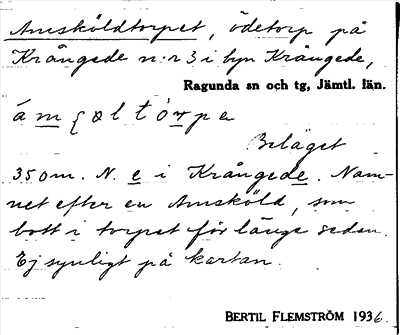 Amsköldtorpet, ödetorp på
Krångede n:r 3 i byn Krångede,
Ragunda sn och tg, Jämtl. län.
Beläget
350m. N. e i Krångede. Nam-
net efter en Amsköld, som
bott i torpet för länge sedan.
Ej synligt på kartan.
BERTIL FLEMSTRÖM 1936.